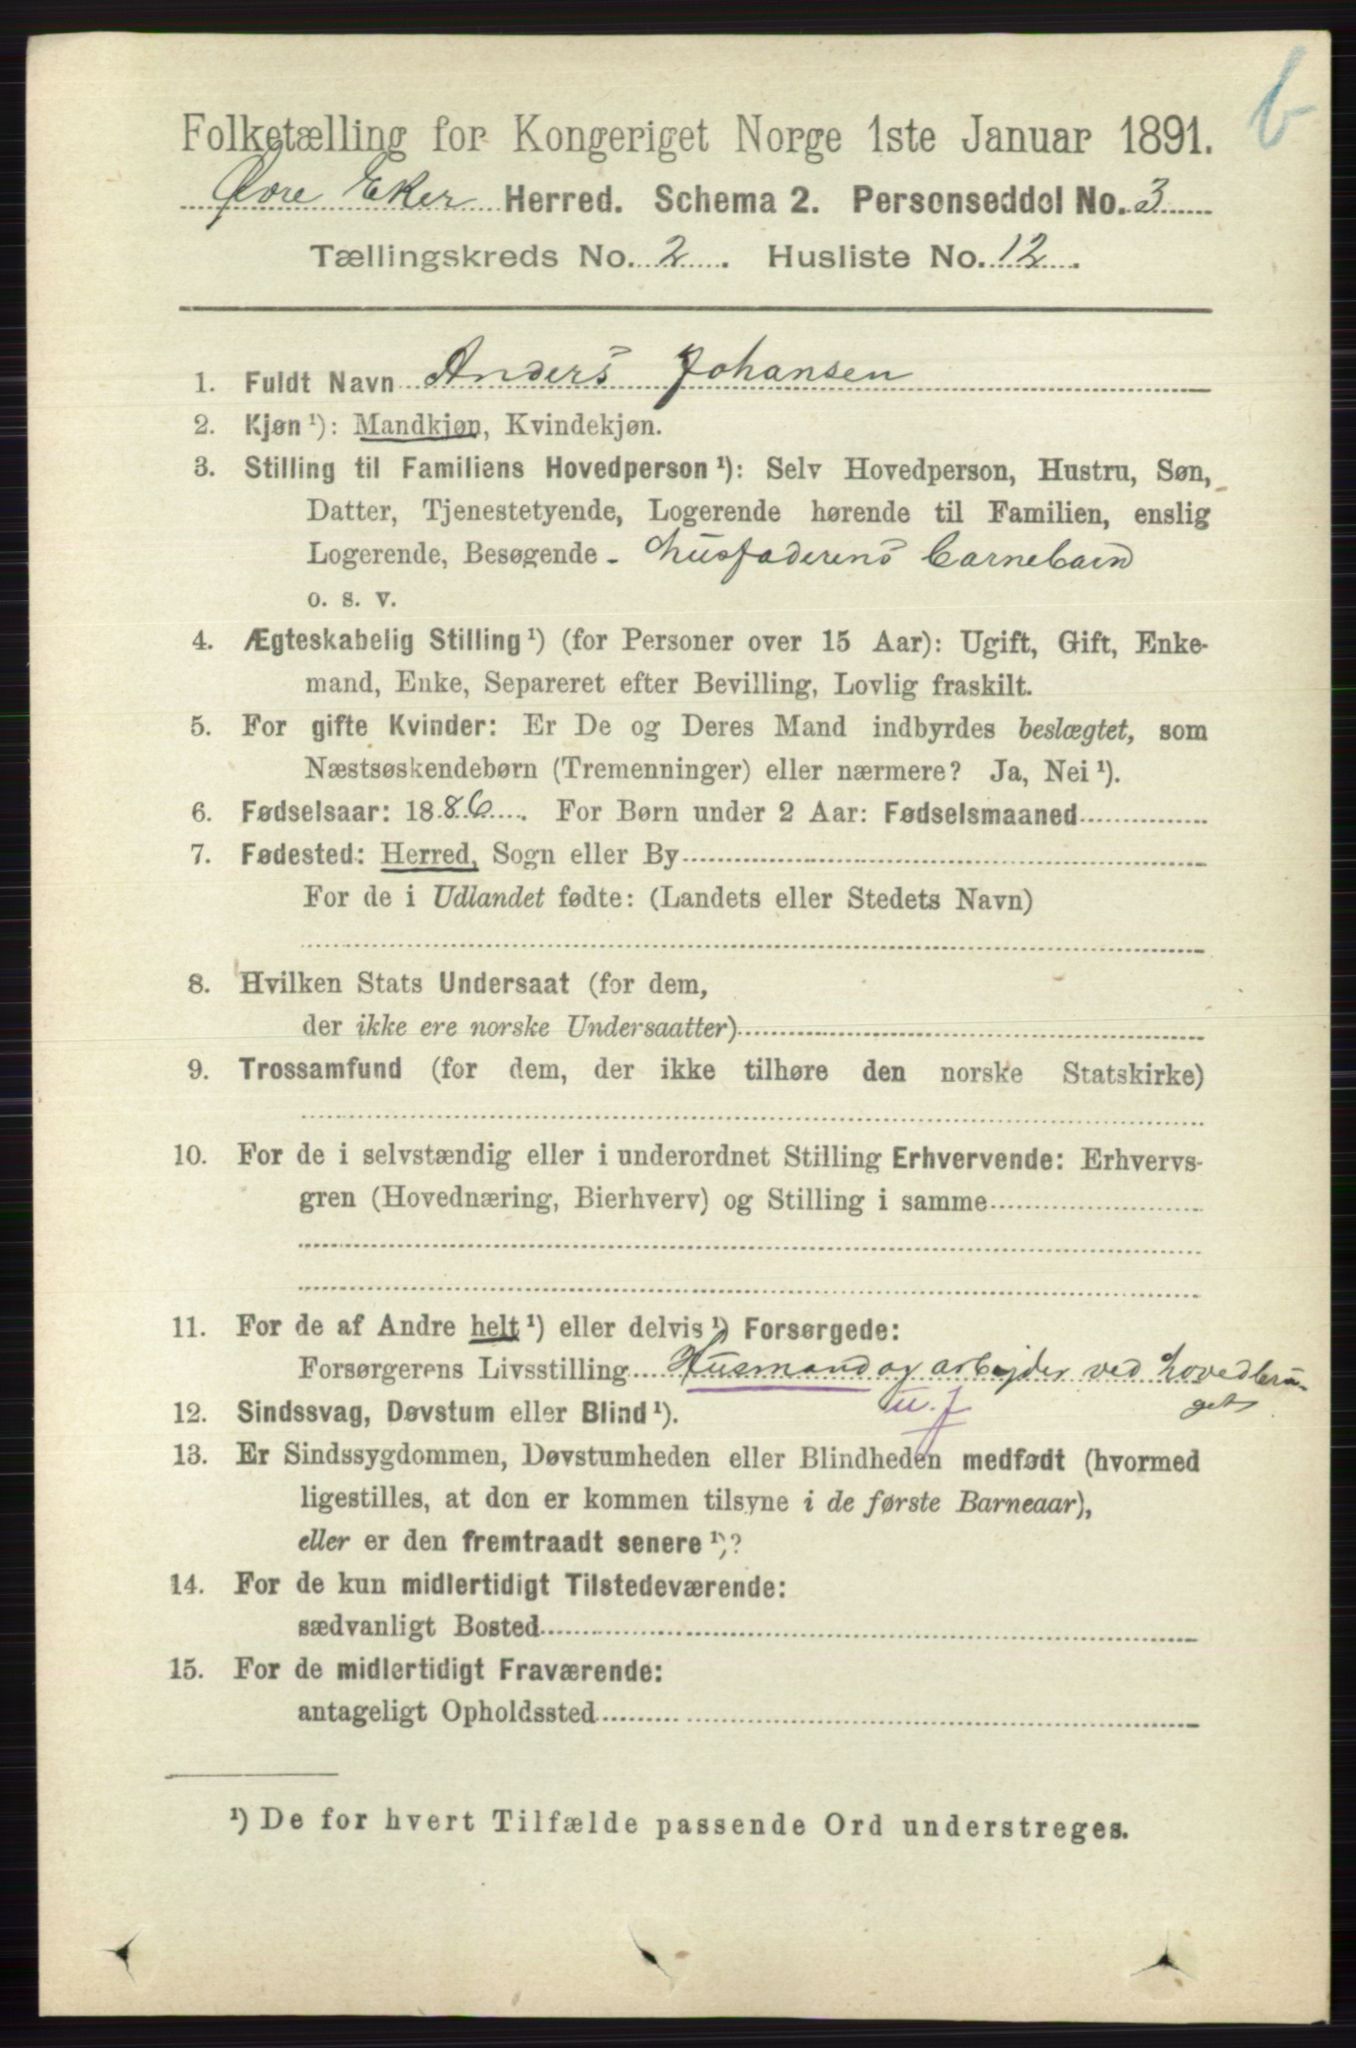 b
Folketælling for Kongeriget Norge 1ste Januar 1891.
Øvre Eker Herred. Schema 2. Personseddel No. 3
Tællingskreds No. 2. Husliste No. 12.
1. Fuldt Navn Anders Johansen
2. Kjøn¹): Mandkjøn, Kvindekjøn.
3. Stilling til Familiens Hovedperson¹): Selv Hovedperson, Hustru, Søn,
Datter, Tjenestetyende, Logerende hørende til Familien, enslig
Logerende, Besøgende - husfaderens barnebarn
o. s. v.
4. Ægteskabelig Stilling¹) (for Personer over 15 Aar): Ugift, Gift, Enke-
mand, Enke, Separeret efter Bevilling, Lovlig fraskilt.
5. For gifte Kvinder: Er De og Deres Mand indbyrdes beslægtet, som
Næstsøskendebørn (Tremenninger) eller nærmere? Ja, Nei¹).
6. Fødselsaar: 1886. For Børn under 2 Aar: Fødselsmaaned
7. Fødested: Herred, Sogn eller By
For de i Udlandet fødte: (Landets eller Stedets Navn)
8. Hvilken Stats Undersaat (for dem,
der ikke ere norske Undersaatter)
9. Trossamfund (for dem, der ikke tilhøre den norske Statskirke)
10. For de i selvstændig eller i underordnet Stilling Erhvervende: Erhvervs-
gren (Hovednæring, Bierhverv) og Stilling i samme
11. For de af Andre helt¹) eller delvis¹) Forsørgede:
Forsørgerens Livsstilling Husmand og arbejder ved hovedbru-
get
u. J
12. Sindssvag, Døvstum eller Blind¹).
13. Er Sindssygdommen, Døvstumheden eller Blindheden medfødt (hvormed
ligestilles, at den er kommen tilsyne i de første Barneaar),
eller er den fremtraadt senere¹)?
14. For de kun midlertidigt Tilstedeværende:
sædvanligt Bosted
15. For de midlertidigt Fraværende:
antageligt Opholdssted
¹) De for hvert Tilfælde passende Ord understreges.